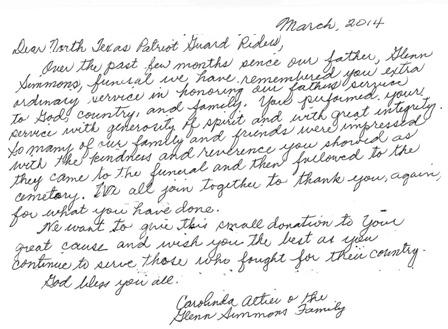 March, 2014
Dear North Texas Patriot Guard Riders,
Over the past few months sence our father, Glenn
Simmons, funeral we have remembered you extra
ordinary service in honoring our fathers service
to God, country, and family. You performed your
service with generosity of spirit and with great integrity.
So many of our family and friends were impressed
with the kindness and reverence you showed as
they came to the funeral and then followed to the
cemetary. We all join together to thank you, again,
for what you have done.
We want to give this small donation to your
great cause and wish you the best as you
continue to serve those who fought for their country.
God bless you all.
Carolinda & the
Glenn Simmons Family